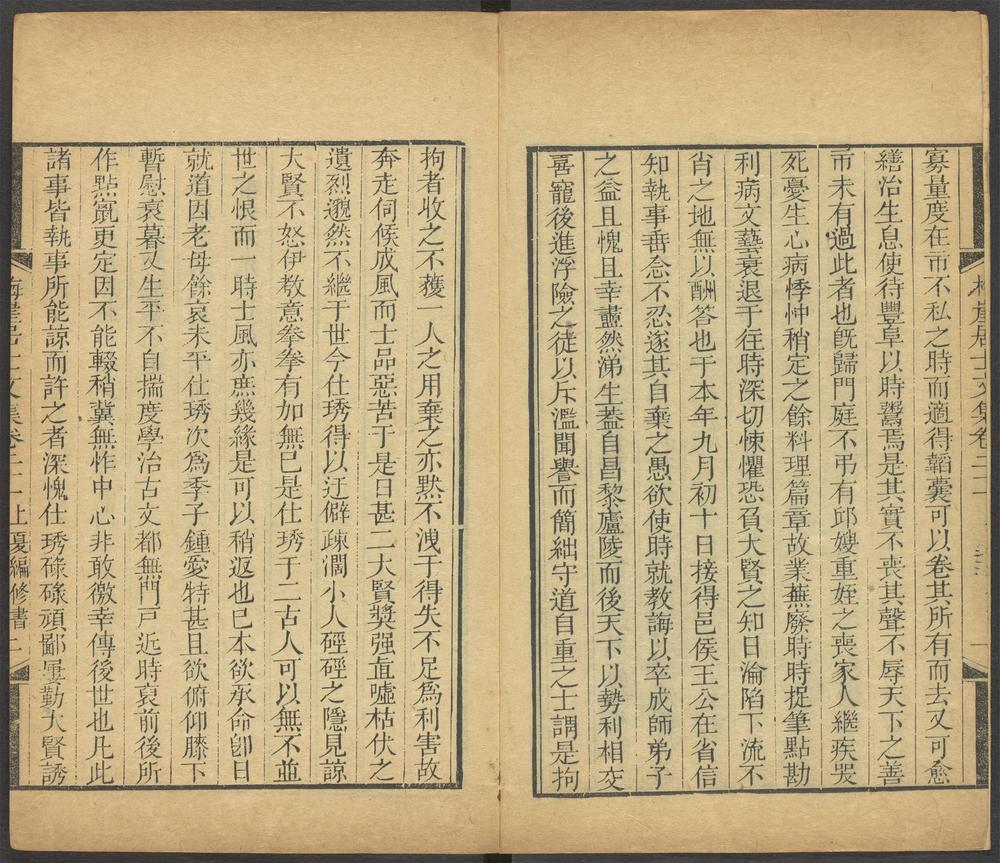 梅崖居士文集卷二十一
寡量度在市不私之時而適得韜囊可以卷其所有而去又可愈
繕治生息使待豐阜以時鬻焉是其實不喪其聲不辱天下之善
市未有過此者也旣歸門庭不弔有邱嫂重姪之喪家人繼疾哭
死憂生心病悸忡稍定之餘料理篇章故業蕪廢時時捉筆點勘
利病文藝衰退于往時深切悚懼恐負大賢之知日淪陷下流不
肖之地無以酬答也于本年九月初十日接得邑侯王公在省信
知執事垂念不忍遂其自棄之愚欲使時就教誨以卒成師弟子
之益且愧且幸衋然涕生葢自昌黎廬陵而後天下以勢利相交
喜寵後進浮險之徒以斥濫聞譽而簡絀守道自重之士謂是拘
拘者收之不獲一人之用棄之亦黙不洩于得失不足爲利害故
奔走伺候成風而士品惡苦于是日甚二大賢奬强直噓枯伏之
遺烈邈然不繼于世今仕琇得以迂僻疎濶小人硜硜之隱見諒
大賢不怒伊教意拳拳有加無已是仕琇于二古人可以無不並
世之恨而一時士風亦庶幾緣是可以稍返也巳本欲承命卽日
就道因老母餘哀未平仕琇次爲季子鍾愛特甚且欲俯仰膝下
暫慰衰暮又生平不自揣度學治古文都無門戸近時裒前後所
作點竄更定因不能輟稍冀無怍中心非敢徼幸傳後世也凡此
諸事皆執事所能諒而許之者深愧仕琇碌碌頑鄙屢勤大賢誘
梅崖居士文集卷二十一 上夏編修書 二